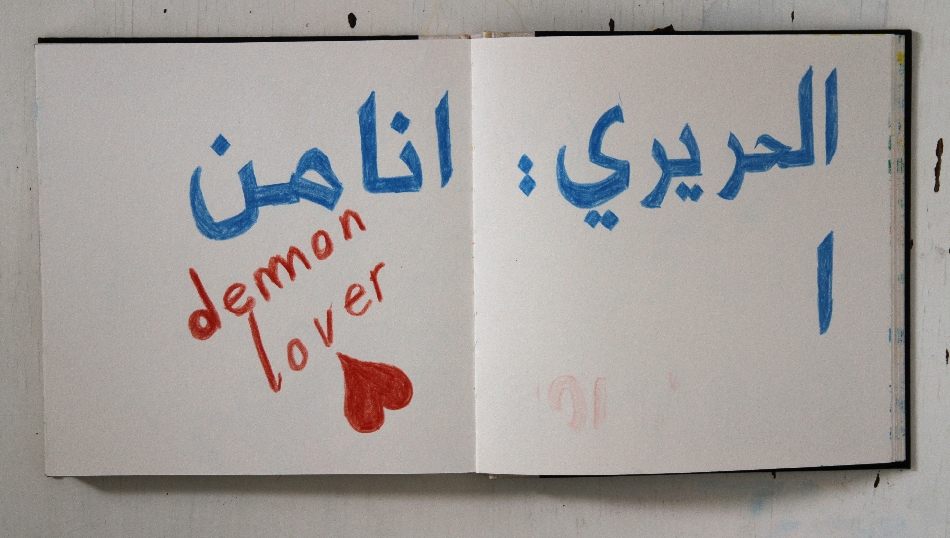 الحريري :
ا
انا من
demon
lover